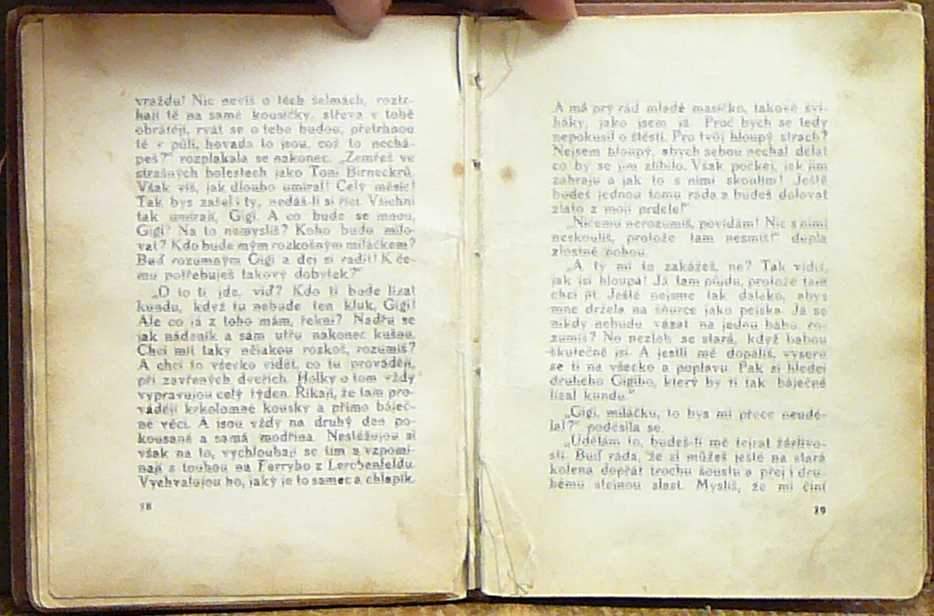 vraždu! Nic nevíš o těch šelmách, roztr-
hají tě na samé kousíčky, střeva v tobě
obrátějí, rvát se o tebe budou, přetrhnou
tě v půli, hovada to jsou, což to nechá-
peš?" rozplakala se nakonec. „Zemřeš ve
strašných bolestech jako Toni Birneckrů.
Však víš, jak dlouho umíral! Celý měsíc!
Tak bys zašel i ty, nedáš-li si říct. Všichni
tak umírají, Gigi. A co bude se mnou,
Gigi? Na to nemyslíš? Koho budu milo-
vat? Kdo bude mým rozkošným miláčkem?
Buď rozumným Gigi a dej si radit! K če-
mu potřebuješ takový dobytek?"
„O to ti jde, viď? Kdo ti bude lízat
kundu, když tu nebude ten kluk, Gigi!
Ale co já z toho mám, řekni? Nadřu se
jak nádeník a sám utřu nakonec kušnu.
Chci mít taky nějakou rozkoš, rozumíš?
A chci to všecko vidět, co tu provádějí,
při zavřených dveřích. Holky o tom vždy
vypravujou celý týden. Říkají, že tam pro-
vádějí krkolomné kousky a přímo báječ-
né věci. A jsou vždy na druhý den po-
kousané a samá modřina. Nestěžujou si
však na to, vychloubají se tím a vzpomí-
nají s touhou na Ferryho z Lerchenfeldu.
Vychvalujou ho, jaký je to samec a chlapík.
78
A má prý rád mladé masíčko, takové švi-
háky, jako jsem já. Proč bych se tedy
nepokusil o štěstí. Pro tvůj hloupý strach?
Nejsem hloupý, abych sebou nechal dělat
co by se jim zlíbilo. Však počkej, jak jim
zahraju a jak to s nimi skoulím! Ještě
budeš jednou tomu ráda a budeš dolovat
zlato z mojí prdele!"
„Ničemu nerozumíš, povídám! Nic s nimi
neskoulíš, protože tam nesmíš!" dupla
zlostně nohou.
„A ty mi to zakážeš, ne? Tak vidíš,
jak jsi hloupá! Já tam půjdu, protože tam
chci jít. Ještě nejsme tak daleko, abys
mne držela na šňůrce jako pejska. Já se
nikdy nebudu vázat na jednu bábu, ro-
zumíš? No nezlob se stará, když babou
skutečně jsi. A jestli mě dopálíš, vyseru
se ti na všecko a poplavu. Pak si hledej
druhého Gigiho, který by ti tak báječně
lízal kundu."
„Gigi, miláčku, to bys mi přece neudě-
lal?" poděsila se.
„Udělám to, budeš-li mě tejrat žárlivo-
stí. Buď ráda, že si můžeš ještě na stará
kolena dopřát trochu šoustu a přej i dru-
hému stejnou slast. Myslíš, že mi činí
79